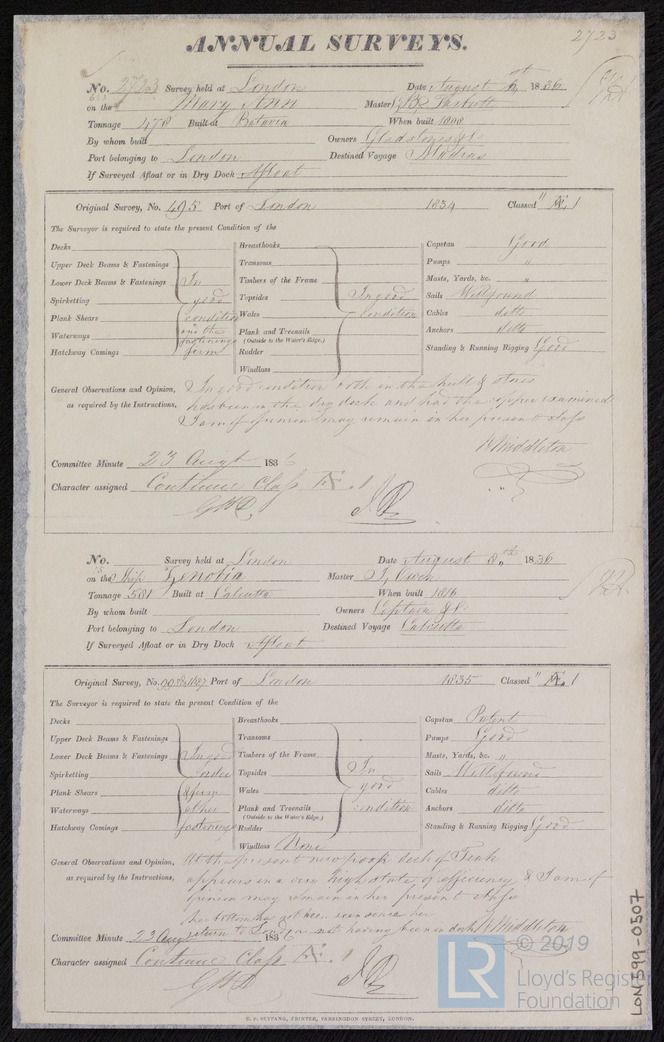 2723
ANNUAL SURVEYS.
No. 2723 Survey held at London Date August 1836
on the Mary Ann Master
Tonnage 478 Built at Batavia When built 1808
By whom built Owners Gladstones & Co
Port belonging to London Destined Voyage Madras
If Surveyed Afloat or in Dry Dock Afloat
Original Survey, No. 495 Port of London 1834 Classed Æ 1
The Surveyor is required to state the present Condition of the
Decks Breasthooks Capstan Good
Upper Deck Beams & Fastenings Transoms Pumps "
Lower Deck Beams & Fastenings In Timbers of the Frame Masts, Yards, &c. "
Spirketting good Topsides In good Sails Well found
Plank Shears condition Wales condition Cables ditto
Waterways and the fastenings Plank and Treenails Anchors ditto
(Outside to the Water's Edge.)
Hatchway Comings firm Rudder Standing & Running Rigging Good
Windlass
General Observations and Opinion, In good condition both in the hull & stores
as required by the Instructions, has been in the dry dock and had the copper examined
I am of opinion may remain in her present class
R Middleton
Committee Minute 23 Augt 1836
Character assigned Continue Class Æ. 1
No. Survey held at London Date August 8th 1836
on the Ship Zenobia Master J. Owen
Tonnage 581 Built at Calcutta When built 1816
By whom built Owners Captain & Co
Port belonging to London Destined Voyage Calcutta
If Surveyed Afloat or in Dry Dock Afloat
Original Survey, No. Port of London 1835 Classed " Æ. 1
The Surveyor is required to state the present Condition of the
Decks Breasthooks Capstan Patent
Upper Deck Beams & Fastenings Transoms Pumps Good
Lower Deck Beams & Fastenings In good Timbers of the Frame Masts, Yards, &c. "
Spirketting order Topsides In Sails Well found
Plank Shears & firm Wales good Cables ditto
Waterways other Plank and Treenails condition Anchors ditto
(Outside to the Water's Edge.)
Hatchway Comings fastenings Rudder Standing & Running Rigging Good
Windlass None
General Observations and Opinion, At the present new poop deck of Teak
as required by the Instructions, appears in a very high state of efficiency & I am of
opinion may remain in her present class
her bottom has not been seen since her
return to London not having been in dock R Middleton
Committee Minute 23 Augt 1836
Character assigned Continue Class Æ. 1
LON 599-0507
© 2019
LR
Lloyd's Register
Foundation
PRINTER, FARRINGDON STREET, LONDON.